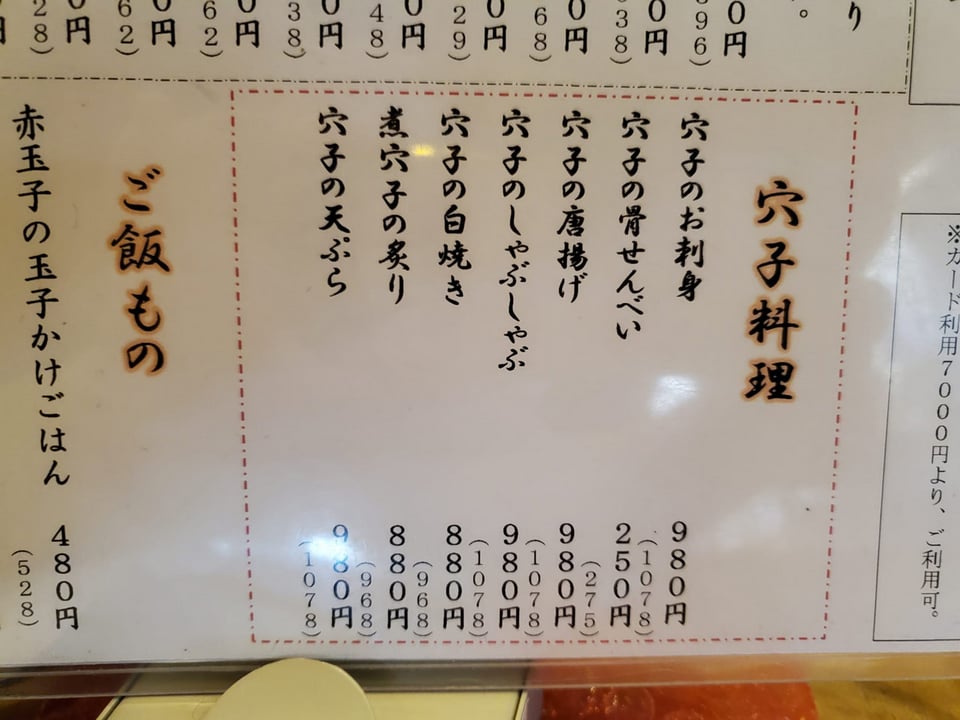 り
。
0円
(896)
0円
(638)
0円
(68)
0円
29)
0円
48)
0円
38)
0円
62)
0円
62)
0円
28)
※カード利用7000円より、ご利用可。
穴子料理
穴子のお刺身 980円
(1078)
穴子の骨せんべい 250円
(275)
穴子の唐揚げ 980円
(1078)
穴子のしゃぶしゃぶ 980円
(1078)
穴子の白焼き 880円
(968)
煮穴子の炙り 880円
(968)
穴子の天ぷら 980円
(1078)
ご飯もの
赤玉子の玉子かけごはん 480円
(528)